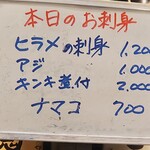 本日のお刺身
ヒラメの刺身 1.200
アジ 1.000
キンキ煮付 2.000
ナマコ 700